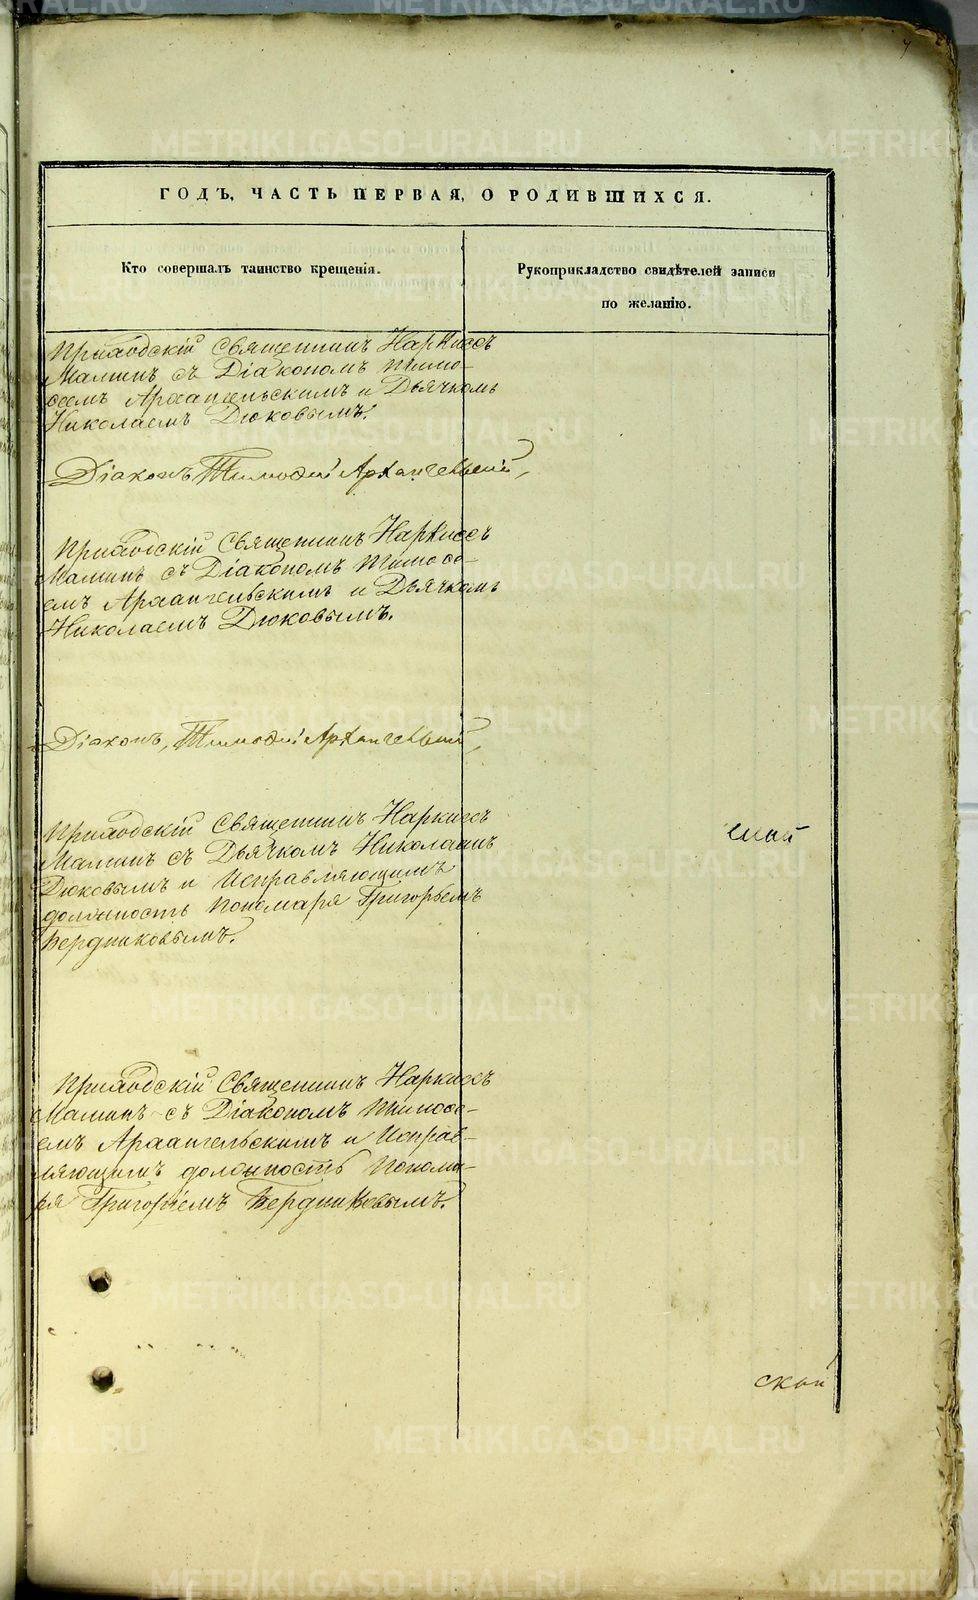 ГОДЪ, ЧАСТЬ ПЕРВАЯ, О РОДИВШИХСЯ.
Кто совершалъ таинство крещенія.
Рукоприкладство свидѣтелей записи
по желанію.
Приходскій Священникъ Наркиссъ
Маминъ съ Діакономъ Тимо-
ѳеемъ Архангельскимъ и Дьячкомъ
Николаемъ Дюковымъ.
Діаконъ Тимоѳей Архангельскій,
Приходскій Священникъ Наркиссъ
Маминъ съ Діакономъ Тимоѳе-
емъ Архангельскимъ и Дьячкомъ
Николаемъ Дюковымъ.
Діаконъ, Тимоѳей Архангельскій,
Приходскій Священникъ Наркиссъ
Маминъ съ Дьячкомъ Николаемъ
Дюковымъ и Исправляющимъ
должность Пономаря Григорьемъ
Бердниковымъ.
Приходскій Священникъ Наркиссъ
Маминъ съ Діакономъ Тимоѳе-
емъ Архангельскимъ и Исправ-
ляющимъ должность Понома-
ря Григоріемъ Бердниковымъ.
ской
METRIKI.GASO-URAL.RU